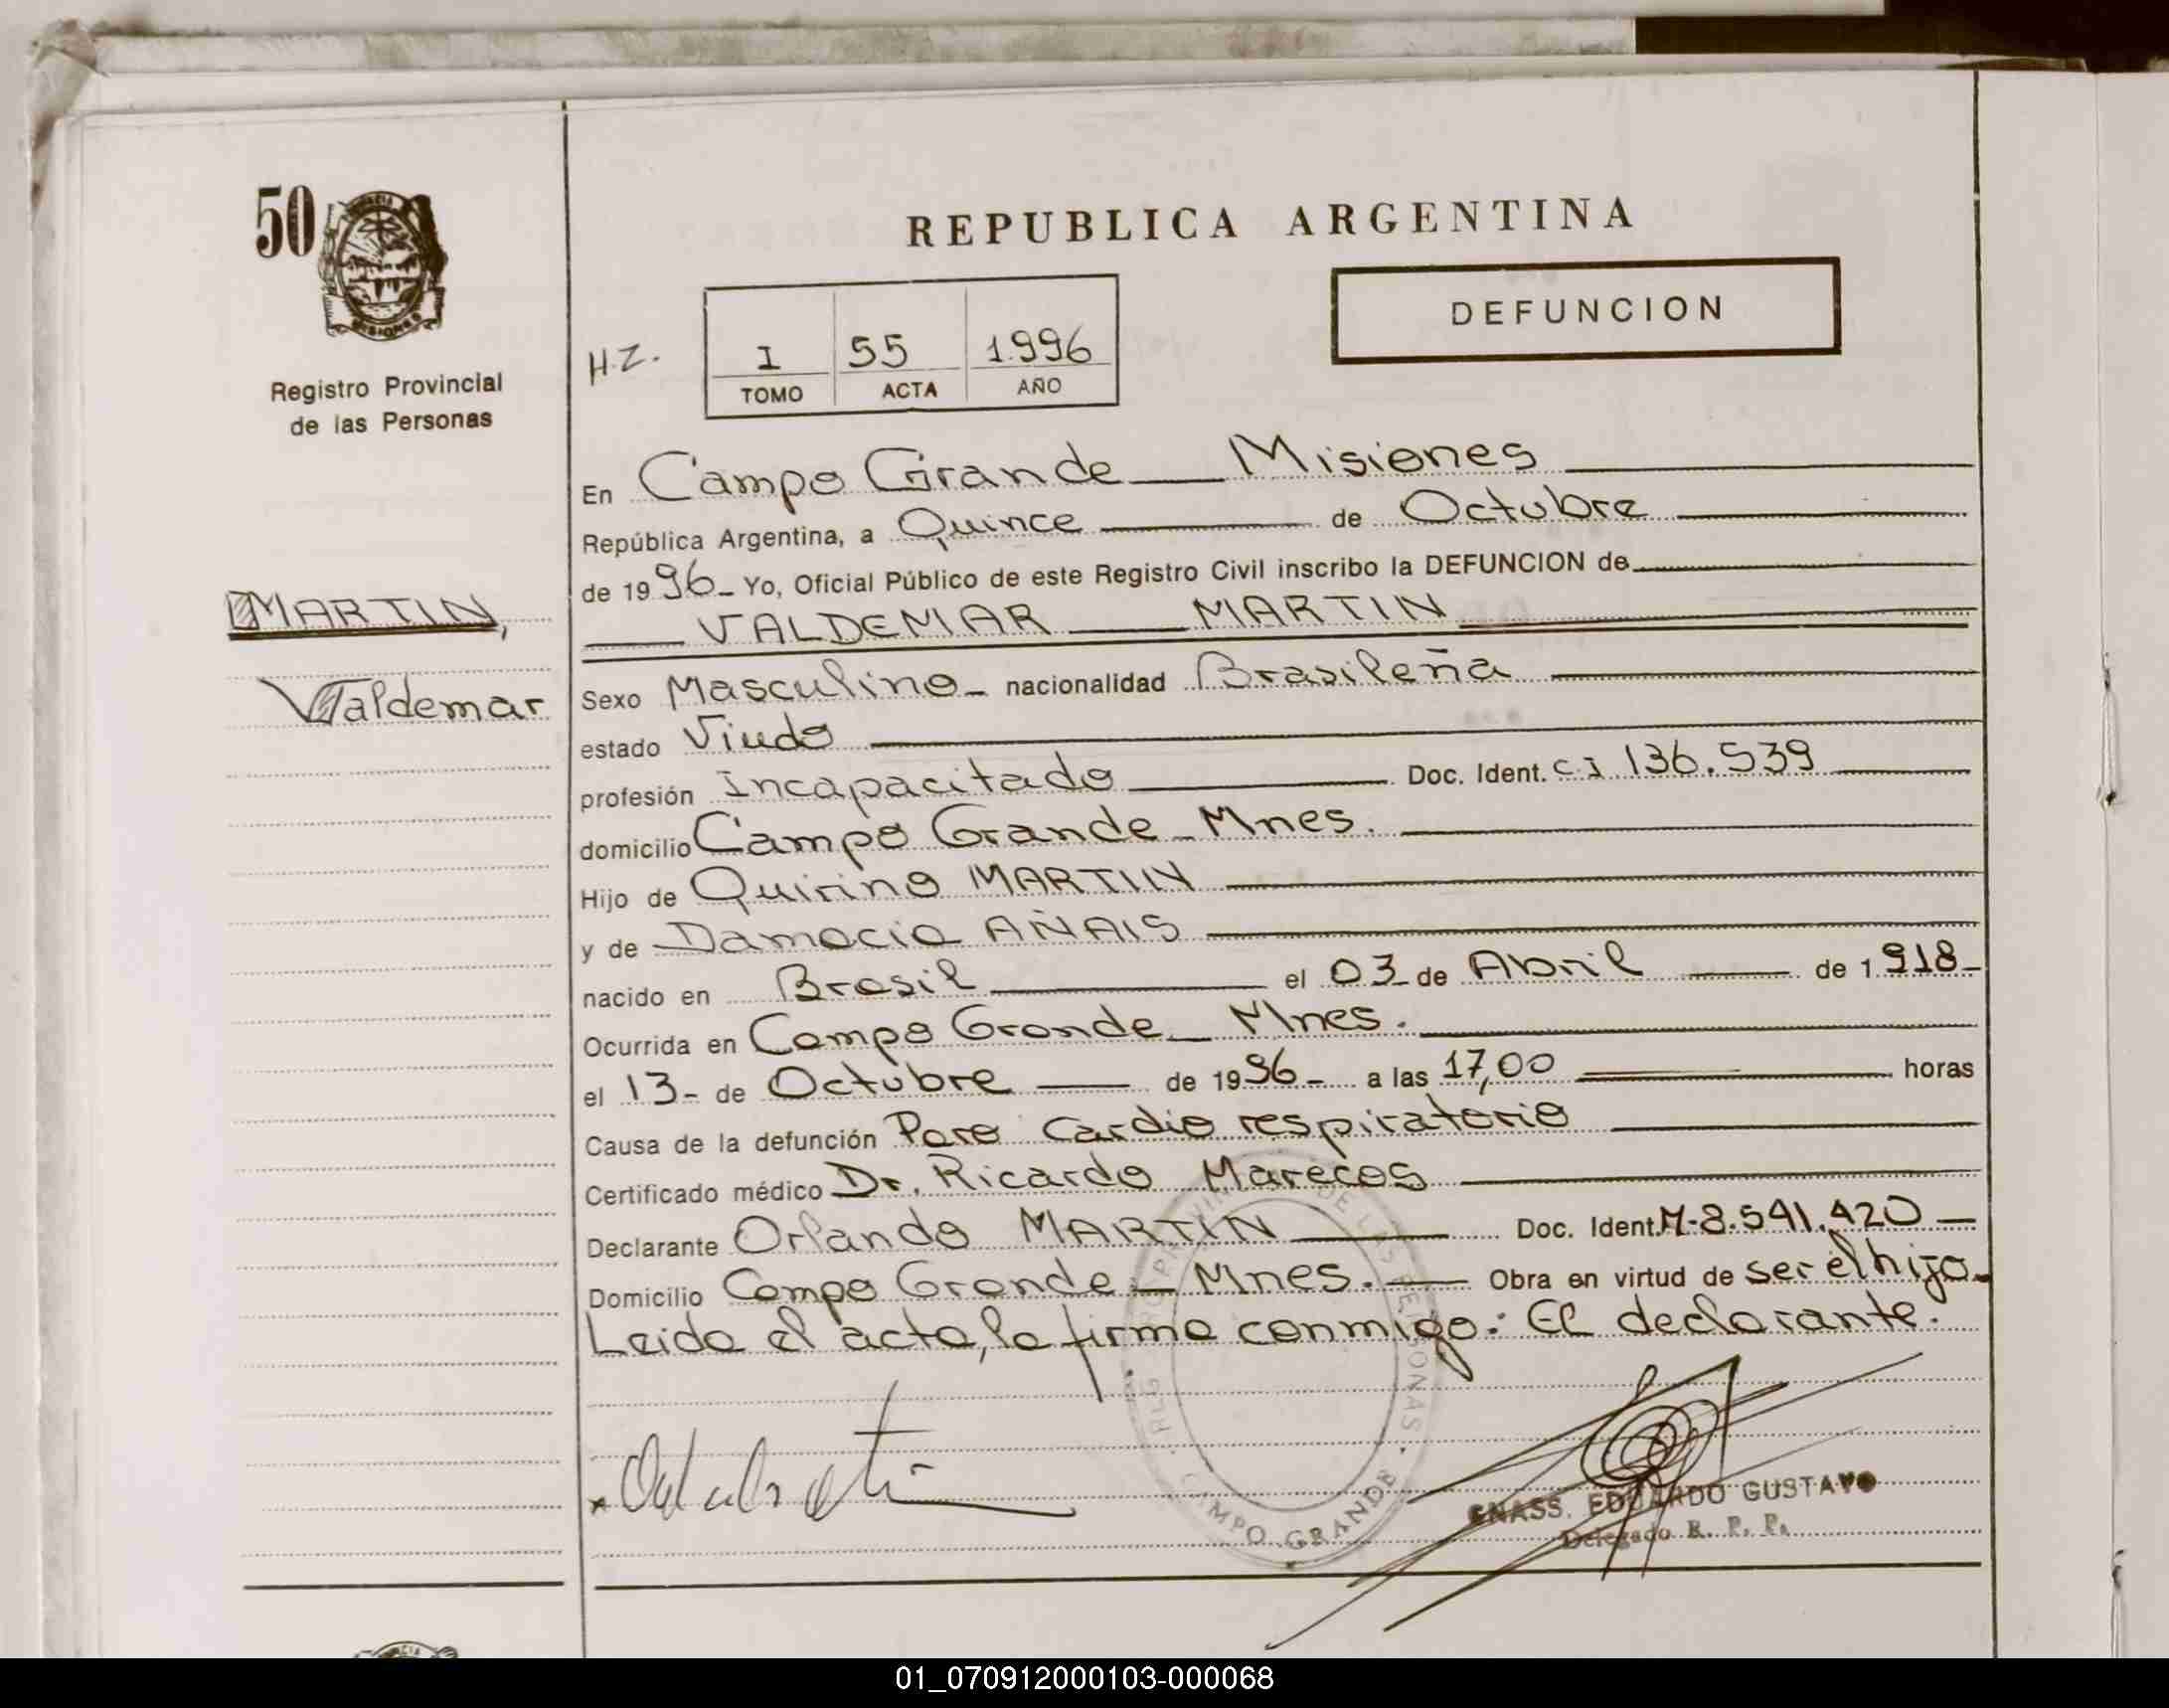 50
Registro Provincial
de las Personas
MARTIN,
Valdemar
REPUBLICA ARGENTINA
DEFUNCION
H.Z.
I 55 1.996
TOMO ACTA AÑO
En Campo Grande Misiones
República Argentina, a Quince de Octubre
de 1996 Yo, Oficial Público de este Registro Civil inscribo la DEFUNCION de
VALDEMAR MARTIN
Sexo Masculino nacionalidad Brasileña
estado Viudo
profesión Incapacitado Doc. Ident. C.I 136.539
domicilio Campo Grande Mnes.
Hijo de Quirino MARTIN
y de Damacia AÑAIS
nacido en Brasil el 03 de Abril de 1918
Ocurrida en Campo Grande Mnes.
el 13 de Octubre de 1996 a las 17,00 horas
Causa de la defunción Paro Cardio respiratorio
Certificado médico Dr. Ricardo Marecos
Declarante Orlando MARTIN Doc. Ident. M-8.541.420
Domicilio Campo Grande Mnes. Obra en virtud de ser el hijo
Leida el acta, la firma conmigo: El declarante.
CAMPO GRANDE
GNASS. EDUARDO GUSTAVO
Delegado R. P. P.
01_070912000103-000068